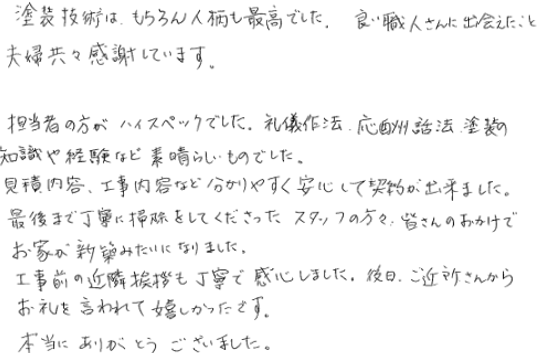 塗装技術は、もちろん人柄も最高でした。良い職人さんに出会えたこと
夫婦共々感謝しています。
担当者の方がハイスペックでした。礼儀作法、応酬話法、塗装の
知識や経験など素晴らしいものでした。
見積内容、工事内容など分かりやすく安心して契約が出来ました。
最後まで丁寧に掃除をしてくださったスタッフの方々、皆さんのおかげで
お家が新築みたいになりました。
工事前の近隣挨拶も丁寧で感心しました。後日、ご近所さんから
お礼を言われて嬉しかったです。
本当にありがとうございました。